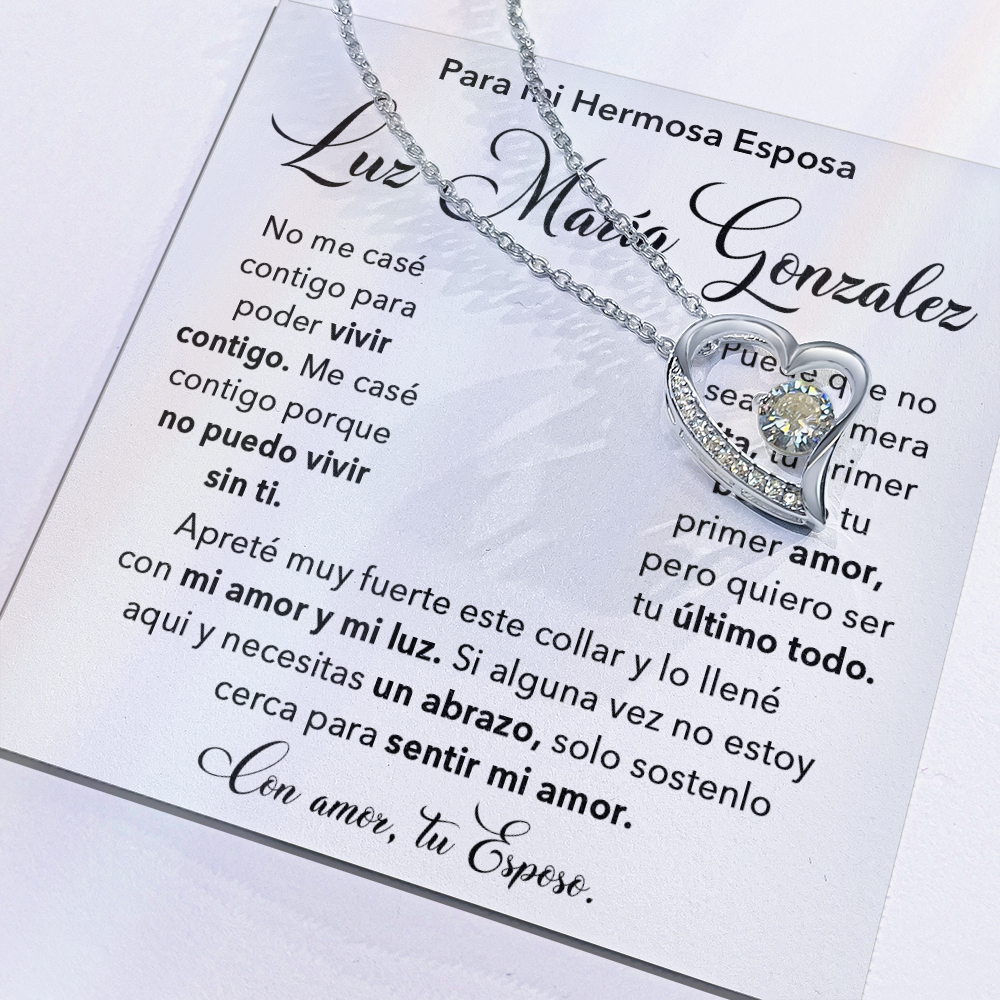 Para mi Hermosa Esposa
Luz María Gonzalez
No me casé
contigo para
poder vivir
contigo. Me casé
contigo porque
no puedo vivir
sin ti.
Puede que no
sea mera
tu rimer
tu
primer amor,
pero quiero ser
tu último todo.
Apreté muy fuerte este collar y lo llené
con mi amor y mi luz. Si alguna vez no estoy
aqui y necesitas un abrazo, solo sostenlo
cerca para sentir mi amor.
Con amor, tu Esposo.